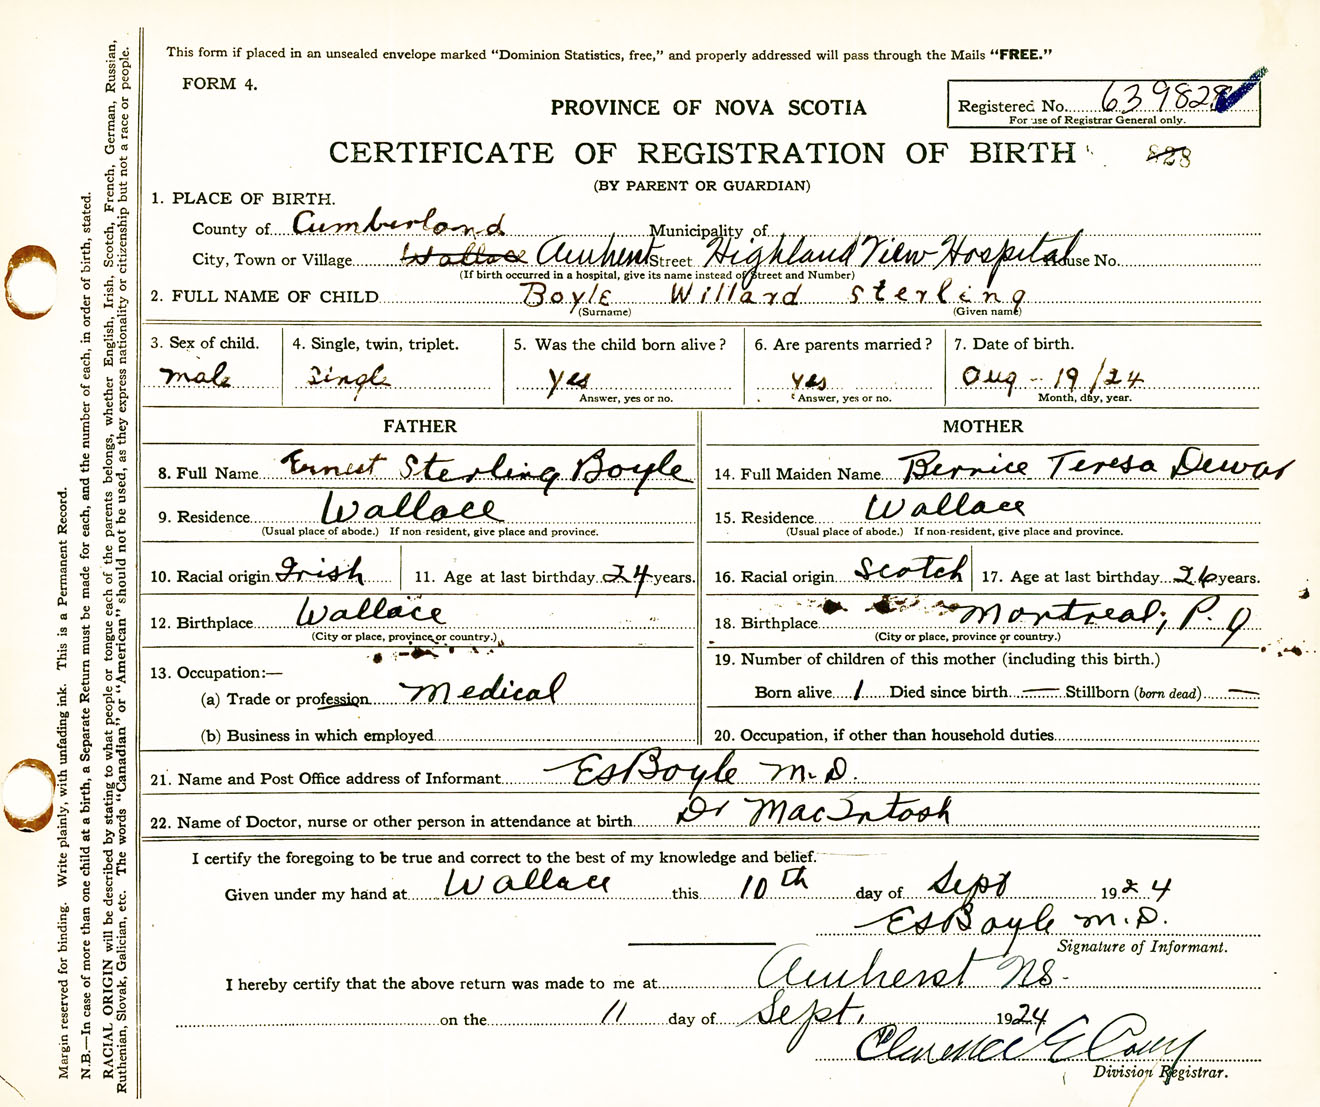 This form if placed in an unsealed envelope marked "Dominion Statistics, free," and properly addressed will pass through the Mails "FREE."
FORM 4.
PROVINCE OF NOVA SCOTIA
Registered No. 639828
For use of Registrar General only.
CERTIFICATE OF REGISTRATION OF BIRTH
828
(BY PARENT OR GUARDIAN)
1. PLACE OF BIRTH.
County of Cumberland Municipality of
City, Town or Village Wallace Amherst Street Highland View Hospital House No.
(If birth occurred in a hospital, give its name instead of Street and Number)
2. FULL NAME OF CHILD Boyle Willard Sterling
(Surname) (Given name)
3. Sex of child. 4. Single, twin, triplet. 5. Was the child born alive? 6. Are parents married? 7. Date of birth.
male Single yes yes Aug - 19/24
Answer, yes or no. Answer, yes or no. Month, day, year.
FATHER MOTHER
8. Full Name Ernest Sterling Boyle 14. Full Maiden Name Bernice Teresa Dewar
9. Residence Wallace 15. Residence Wallace
(Usual place of abode.) If non-resident, give place and province. (Usual place of abode.) If non-resident, give place and province.
10. Racial origin Irish 11. Age at last birthday 24 years. 16. Racial origin Scotch 17. Age at last birthday 26 years.
12. Birthplace Wallace 18. Birthplace Montreal, P. Q
(City or place, province or country.) (City or place, province or country.)
13. Occupation:— 19. Number of children of this mother (including this birth.)
(a) Trade or profession Medical Born alive 1 Died since birth — Stillborn (born dead) —
(b) Business in which employed 20. Occupation, if other than household duties
21. Name and Post Office address of Informant ES Boyle M.D.
22. Name of Doctor, nurse or other person in attendance at birth Dr MacIntosh
I certify the foregoing to be true and correct to the best of my knowledge and belief.
Given under my hand at Wallace this 10th day of Sept 1924
ES Boyle M.D.
Signature of Informant.
I hereby certify that the above return was made to me at Amherst NS-
on the 11 day of Sept. 1924
Clarence E
Division Registrar.
Margin reserved for binding. Write plainly, with unfading ink. This is a Permanent Record.
N.B.—In case of more than one child at a birth, a Separate Return must be made for each, and the number of each, in order of birth, stated.
RACIAL ORIGIN will be described by stating to what people or tongue each of the parents belongs, whether English, Irish, Scotch, French, German, Russian,
Ruthenian, Slovak, Galician, etc. The words "Canadian" or "American" should not be used, as they express nationality or citizenship but not a race or people.